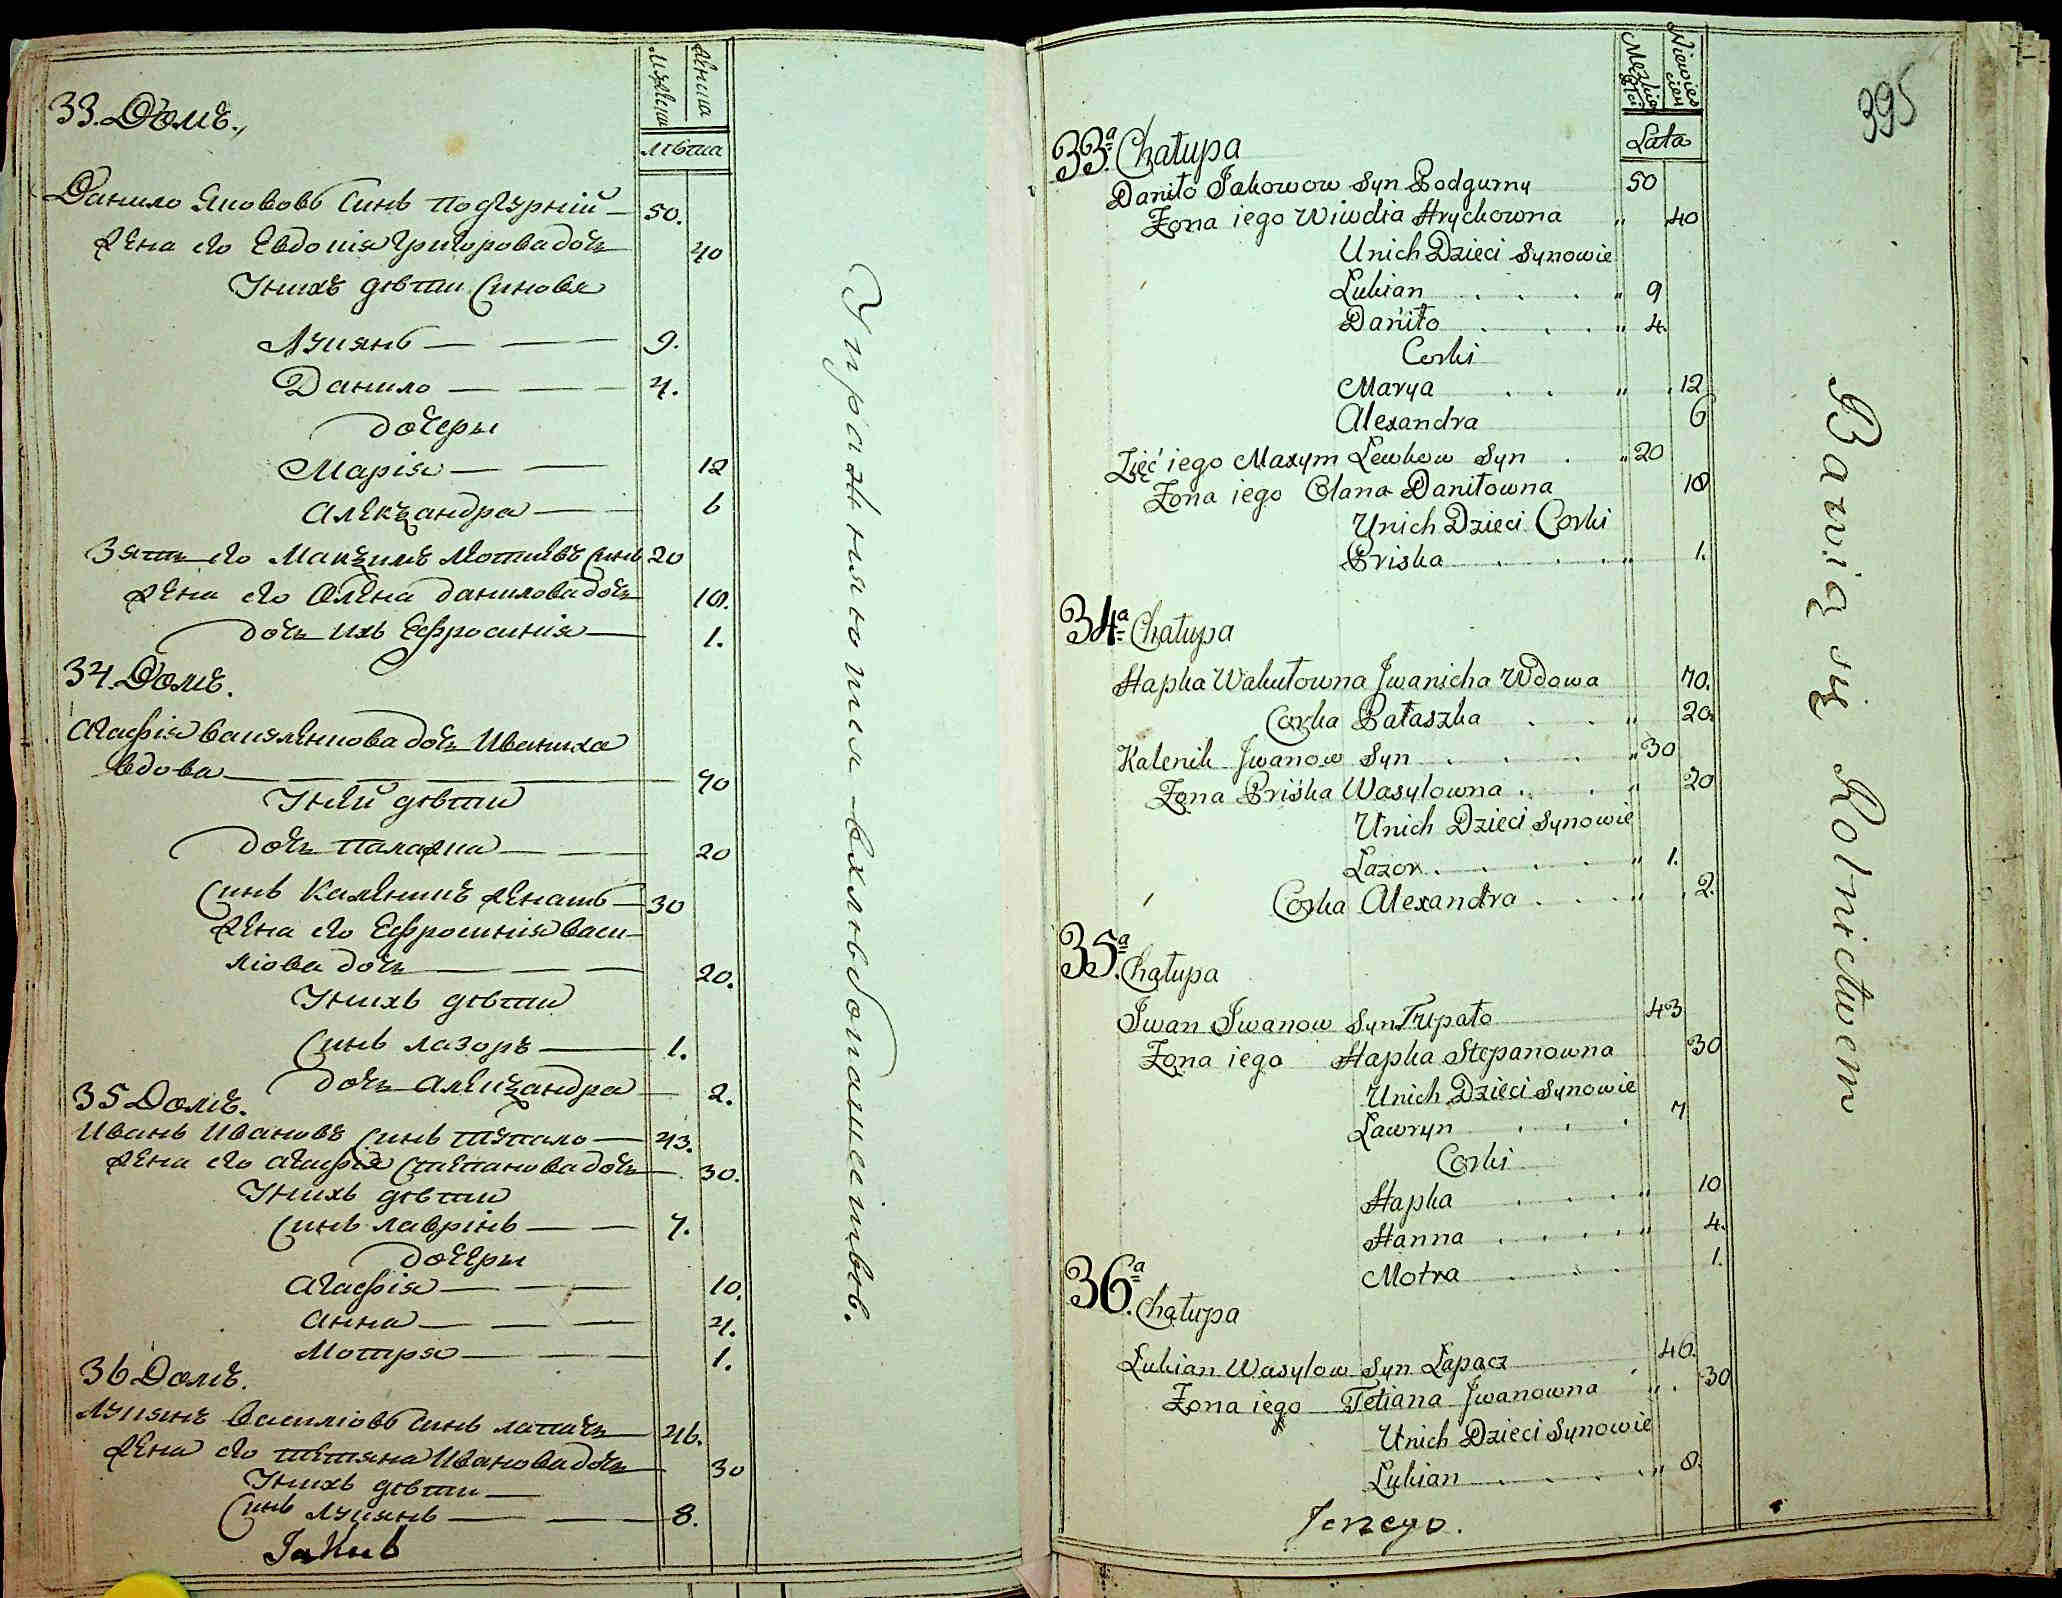 мужеск
женска
лѣта
33. Домъ.
Данило Якововъ синъ подгурній — 50.
Жена его Евдокія Григорова дочь 40
У нихъ дѣти синовя
Лукянъ — 9.
Данило — 4.
дочеры
Марія — 12
Алекзандра — 6
Зять его Макзимъ синъ 20
Жена его Олена данилова дочь 18.
дочь ихъ Ефросинія — 1.
34. Домъ.
Агафія дочь Иваниха
вдова — 70
У ней дѣти
дочь палажка — 20
Синъ Каленикъ женатъ — 30
Жена его Ефросинія васи-
ліова дочь — 20.
У нихъ дѣти
Синъ лазоръ — 1.
дочь Алекзандра — 2.
35 Домъ.
Иванъ Ивановъ синъ тупало — 43.
Жена его Агафія Степанова дочь — 30.
У нихъ дѣти
Синъ лаврінъ — 7.
дочеры
Агафія — 10.
Анна — 4.
Мотря — 1.
36 Домъ.
Лукянъ Василіовъ синъ лапачъ 46.
Жена его тетяна Иванова дочь 30
У нихъ дѣти —
Синъ Лукянъ — 8.
Упражняются в хлѣбопашествѣ.
395
Męzkie
Lata
33.ª Chałupa
Daniło Jakowow Syn Podgurny 50
Żona iego Wiwdia Hrychowna " 40
Unich Dzieci Synowie
Lukian . . . " 9
Daniło . . . " 4.
Corki
Marya . . " 12
Alexandra 6
Zięć iego Maxym Lewkow Syn . " 20
Żona iego Olana Daniłowna 18
Unich Dzieci Corki
Priska . . . " 1.
34.ª Chałupa
Hapka Wakułowna Jwanicha Wdowa 70.
Corka Pałaszka . . " 20.
Kalenik Jwanow Syn . . . " 30
Żona Priska Wasylowna . . " 20
Unich Dzieci Synowie
Lazor . . . . " 1.
Corka Alexandra . . . " 2.
35.ª Chałupa
Jwan Jwanow Syn Tupało 43
Żona iego Hapka Stepanowna 30
Unich Dzieci Synowie
Lawryn . . . 7
Corki
Hapka . . . " 10
Hanna . . . . " 4.
Motra . . . . 1.
36.ª Chałupa
Lukian Wasylow Syn Łapacz 46.
Żona iego Tetiana Jwanowna " . 30
Unich Dzieci Synowie
Lukian . . . . " 8.
Bawią się Rolnictwem